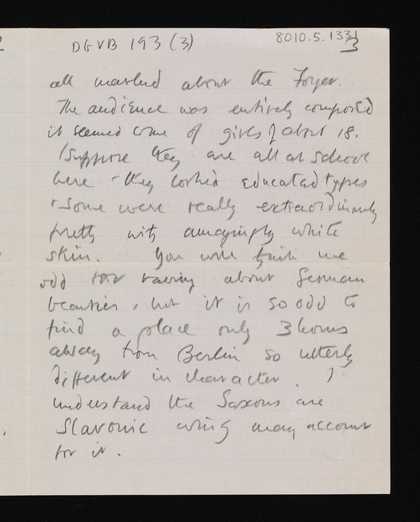 DGVB 193 (3)
8010.5.133/3
all walked about the Foyer.
The audience was entirely composed
it seemed to me of girls of about 18.
I suppose they are all at school
here - they looked educated types
& some were really extraordinarily
pretty with amazingly white
skin. You will think me
odd for raving about German
beauties, but it is so odd to
find a place only 3 hours
away from Berlin so utterly
different in character. I
understand the Saxons are
Slavonic which may account
for it.